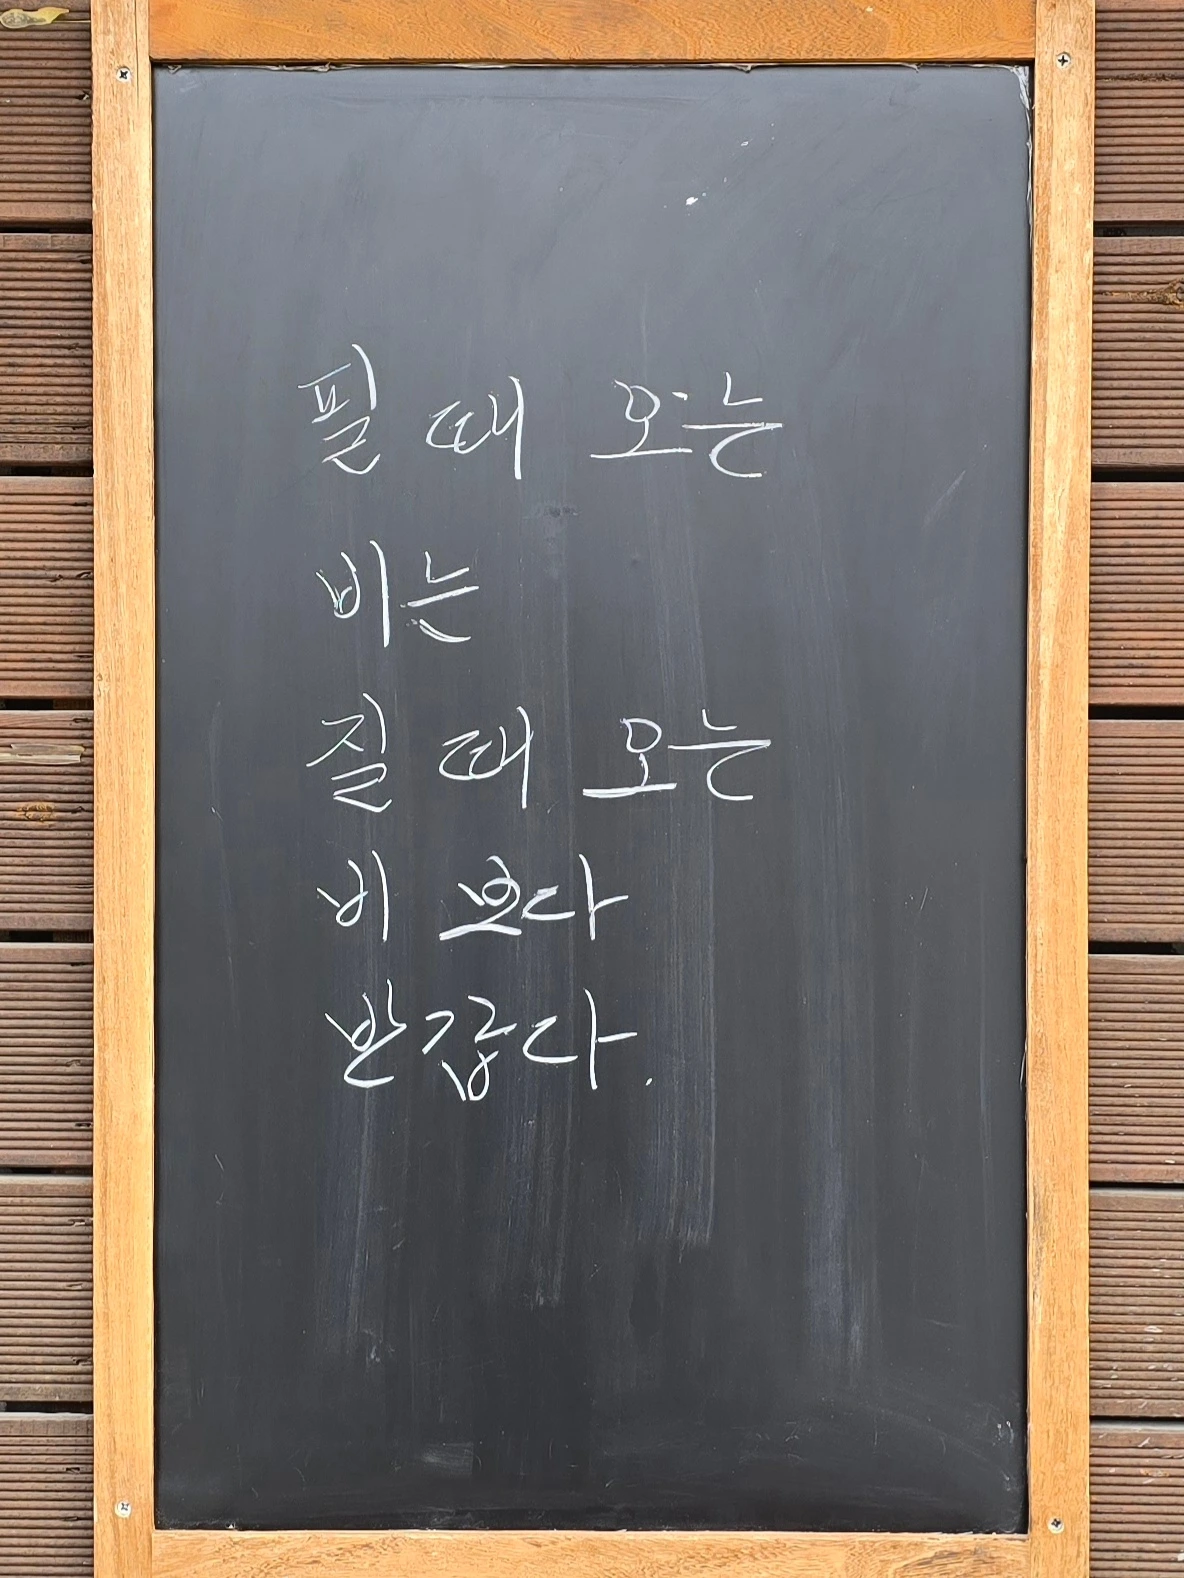 필 때 오는
비는
질 때 오는
비 보다
반갑다.